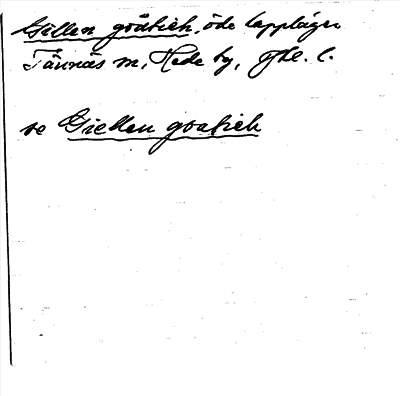 Gillen gåetieh, öde lappläger
Tännäs sn, Hede by, Jtl. l.
se Giellen goatieh